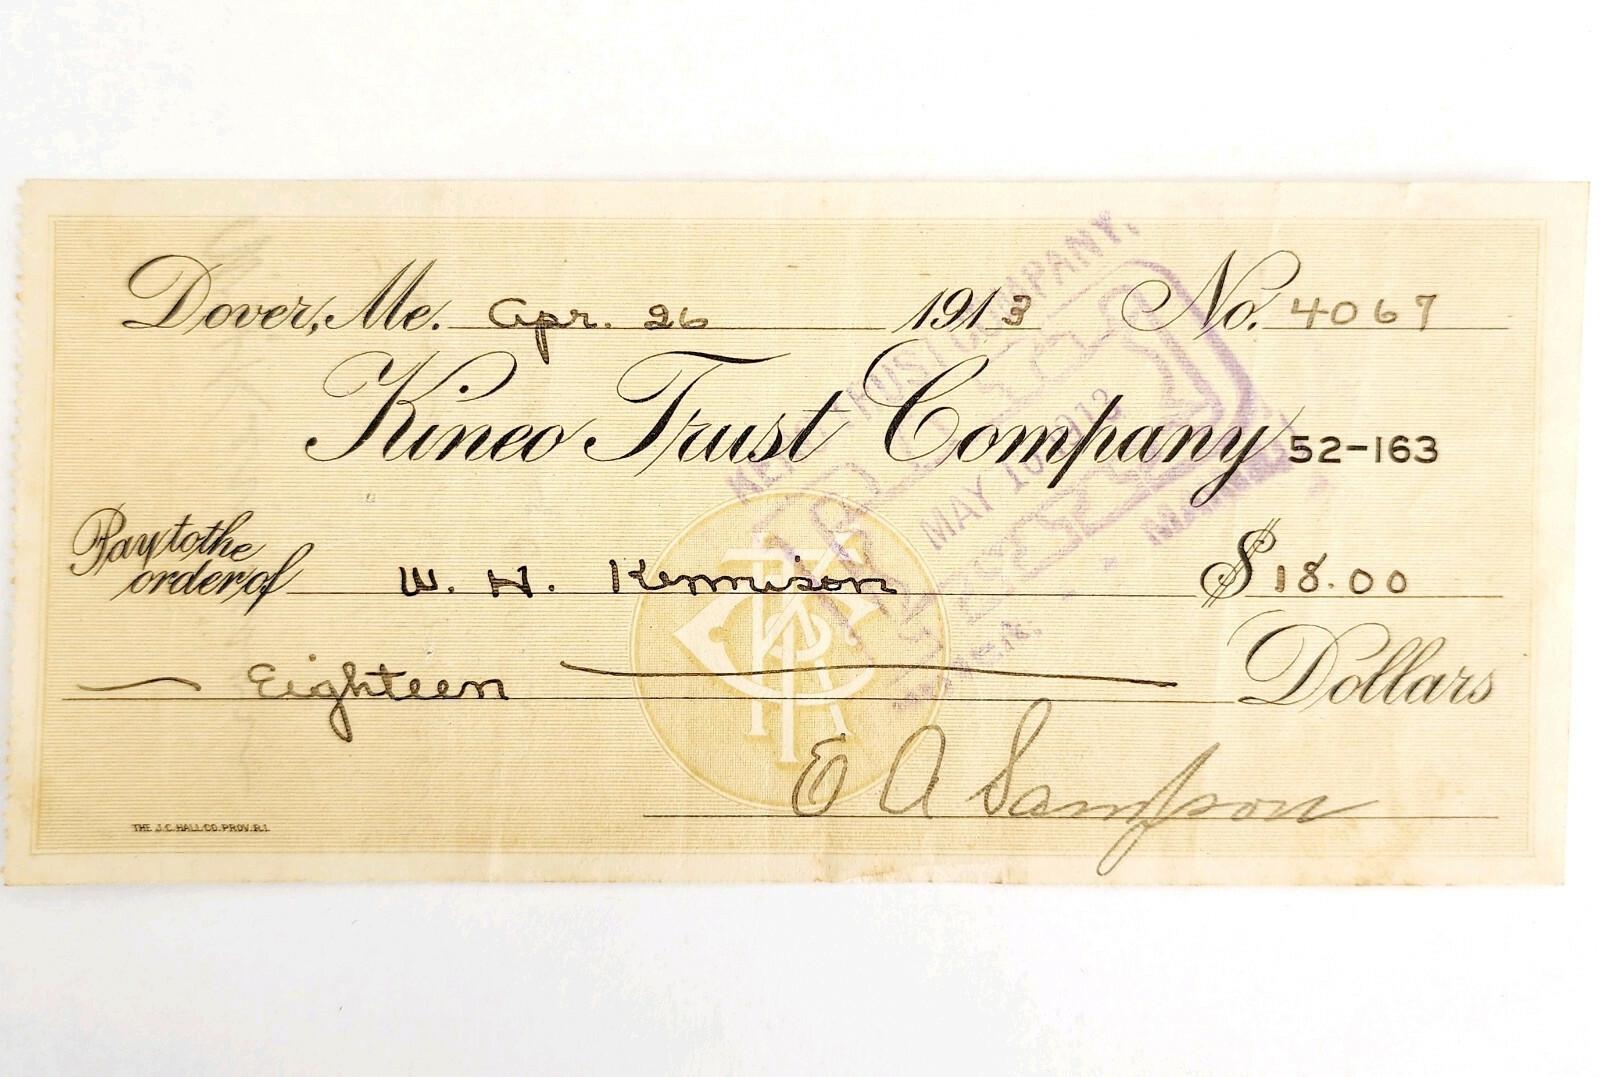 Dover, Me. Apr. 26 1913 No. 4067
Kineo Trust Company 52-163
Pay to the order of W. H. Kennison $18.00
Eighteen Dollars
E A Sampson
THE J.C. HALL CO. PROV. R.I.
TRUST COMPANY,
MAY 10 1913